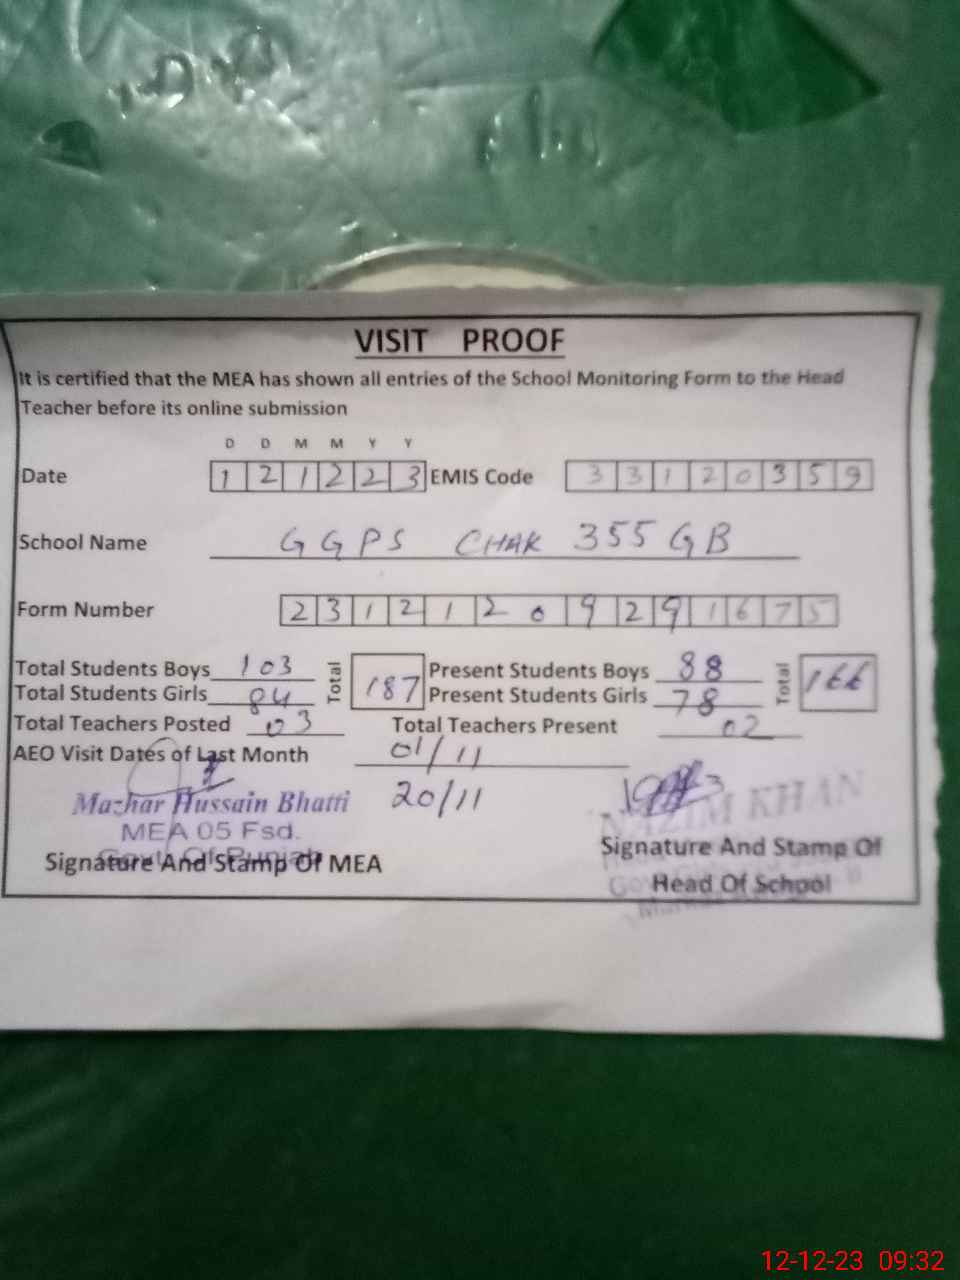 VISIT PROOF
It is certified that the MEA has shown all entries of the School Monitoring Form to the Head
Teacher before its online submission
D D M M Y Y
Date 1 2 1 2 2 3 EMIS Code 3 3 1 2 0 3 5 9
School Name GGPS CHAK 355 GB
Form Number 2 3 1 2 1 2 0 9 2 9 1 6 7 5
Total Students Boys 103 Total 187 Present Students Boys 88 Total 166
Total Students Girls 84 Present Students Girls 78
Total Teachers Posted 03 Total Teachers Present 02
AEO Visit Dates of Last Month 01/11
20/11
Mazhar Hussain Bhatti
MEA 05 Fsd.
Govt. Of Punjab
Signature And Stamp Of MEA
NAZIM KHAN
Signature And Stamp Of
Head Of School
12-12-23 09:32